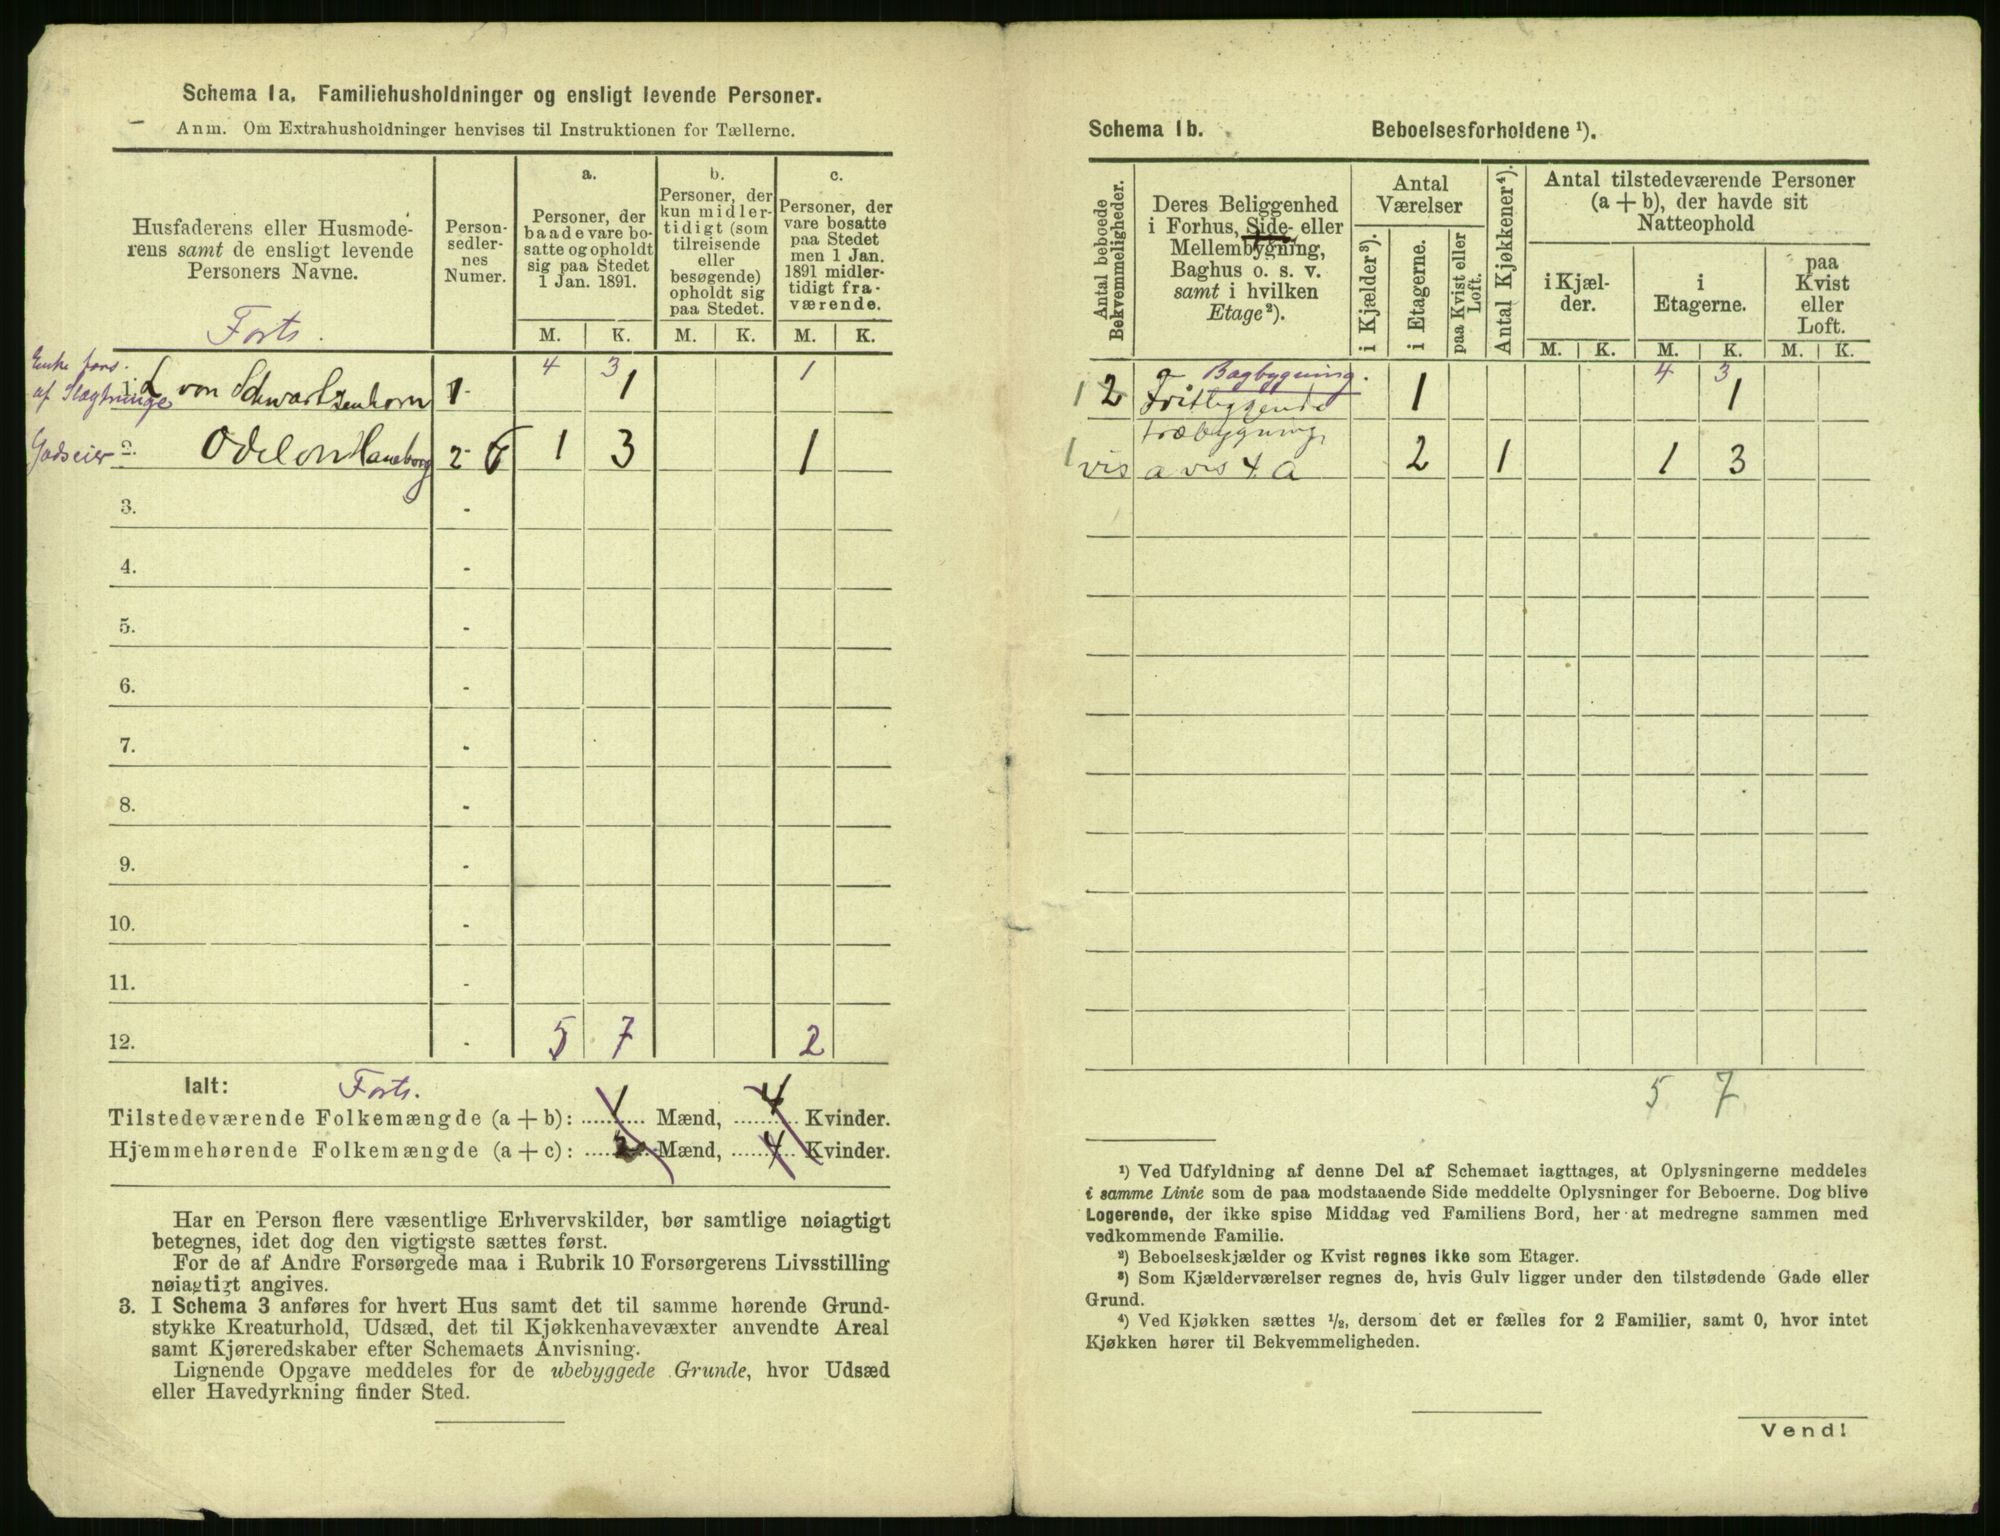 Schema 1a. Familiehusholdninger og ensligt levende Personer.
Anm. Om Extrahusholdninger henvises til Instruktionen for Tællerne.
Husfaderens eller Husmode-
rens samt de ensligt levende
Personers Navne.
Forts.
Person-
sedler-
nes
Numer.
a.
Personer, der
baade vare bo-
satte og opholdt
sig paa Stedet
1 Jan. 1891.
b.
Personer, der
kun midler-
tidigt (som
tilreisende
eller
besøgende)
opholdt sig
paa Stedet.
c.
Personer, der
vare bosatte
paa Stedet
men 1 Jan.
1891 midler-
tidigt fra-
værende.
M. K. M. K. M. K.
4 3 1
Enke fors.
af Slægtninge
1. L von Schwartzenhorn 1 - 1
Godseier 2. Odelon Haneborg 2 - 5 1 3 1
3. -
4. -
5. -
6. -
7. -
8. -
9. -
10. -
11. -
12. - 5 7 2
Ialt: Forts.
Tilstedeværende Folkemængde (a + b): 1 Mænd, 4 Kvinder.
Hjemmehørende Folkemængde (a + c): 2 Mænd, 4 Kvinder.
Har en Person flere væsentlige Erhvervskilder, bør samtlige nøiagtigt
betegnes, idet dog den vigtigste sættes først.
For de af Andre Forsørgede maa i Rubrik 10 Forsørgerens Livsstilling
nøiagtigt angives.
3. I Schema 3 anføres for hvert Hus samt det til samme hørende Grund-
stykke Kreaturhold, Udsæd, det til Kjøkkenhavevæxter anvendte Areal
samt Kjøreredskaber efter Schemaets Anvisning.
Lignende Opgave meddeles for de ubebyggede Grunde, hvor Udsæd
eller Havedyrkning finder Sted.
Schema 1b. Beboelsesforholdene ¹).
Antal beboede
Bekvemmeligheder.
Deres Beliggenhed
i Forhus, Side- eller
Mellembygning,
Baghus o. s. v.
samt i hvilken
Etage²).
Antal
Værelser
i Kjælder³).
i Etagerne.
paa Kvist eller
Loft.
Antal Kjøkkener⁴).
Antal tilstedeværende Personer
(a + b), der havde sit
Natteophold
i Kjæl-
der.
i
Etagerne.
paa
Kvist
eller
Loft.
M. K. M. K. M. K.
Bagbygning. 4 3
1 2 Fritliggende 1 1
træbygning
1 vis a vis 4 A 2 1 1 3
5 7
¹) Ved Udfyldning af denne Del af Schemaet iagttages, at Oplysningerne meddeles
i samme Linie som de paa modstaaende Side meddelte Oplysninger for Beboerne. Dog blive
Logerende, der ikke spise Middag ved Familiens Bord, her at medregne sammen med
vedkommende Familie.
²) Beboelseskjælder og Kvist regnes ikke som Etager.
³) Som Kjælderværelser regnes de, hvis Gulv ligger under den tilstødende Gade eller
Grund.
⁴) Ved Kjøkken sættes ½, dersom det er fælles for 2 Familier, samt 0, hvor intet
Kjøkken hører til Bekvemmeligheden.
Vend!